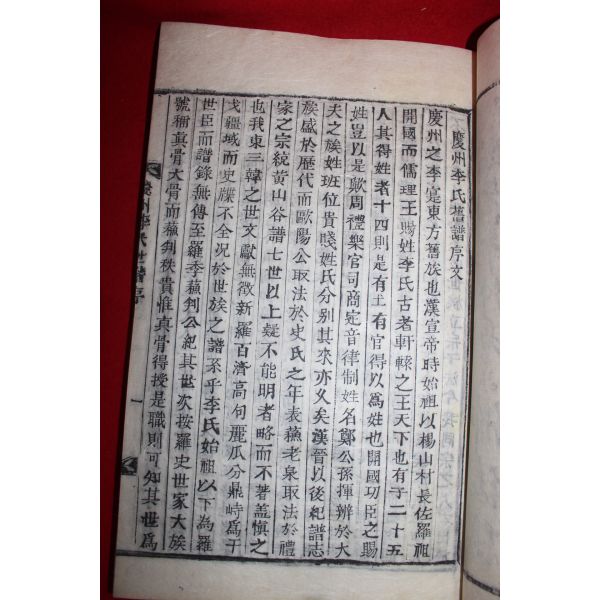 慶州李氏舊譜序文
慶州之李寔東方舊族也漢宣帝時始祖以楊山村長佐羅祖
開國而儒理王賜姓李氏古者軒轅之王天下也有子二十五
人其得姓者十四則是有土有官得以爲姓也開國功臣之賜
姓豈以是歟周禮樂官司商定音律制姓名鄭公孫揮辨於大
夫之族姓班位貴賤姓氏分別其來亦久矣漢晉以後紀譜志
族盛於歷代而歐陽公取法於史氏之年表蘇老泉取法於禮
家之宗統黃山谷譜七世以上疑不能明者略而不著盖愼之
也我東三韓之世文獻無徵新羅百濟高句麗瓜分鼎峙爲干
戈疆域而史牒不全況於世族之譜系乎李氏始祖以下爲羅
世臣而譜錄無傳至羅季蘇判公紀其世次按羅史世家大族
號稱眞骨大骨而蘇判秩貴惟眞骨得授是職則可知其世爲
慶州李氏世譜序
一